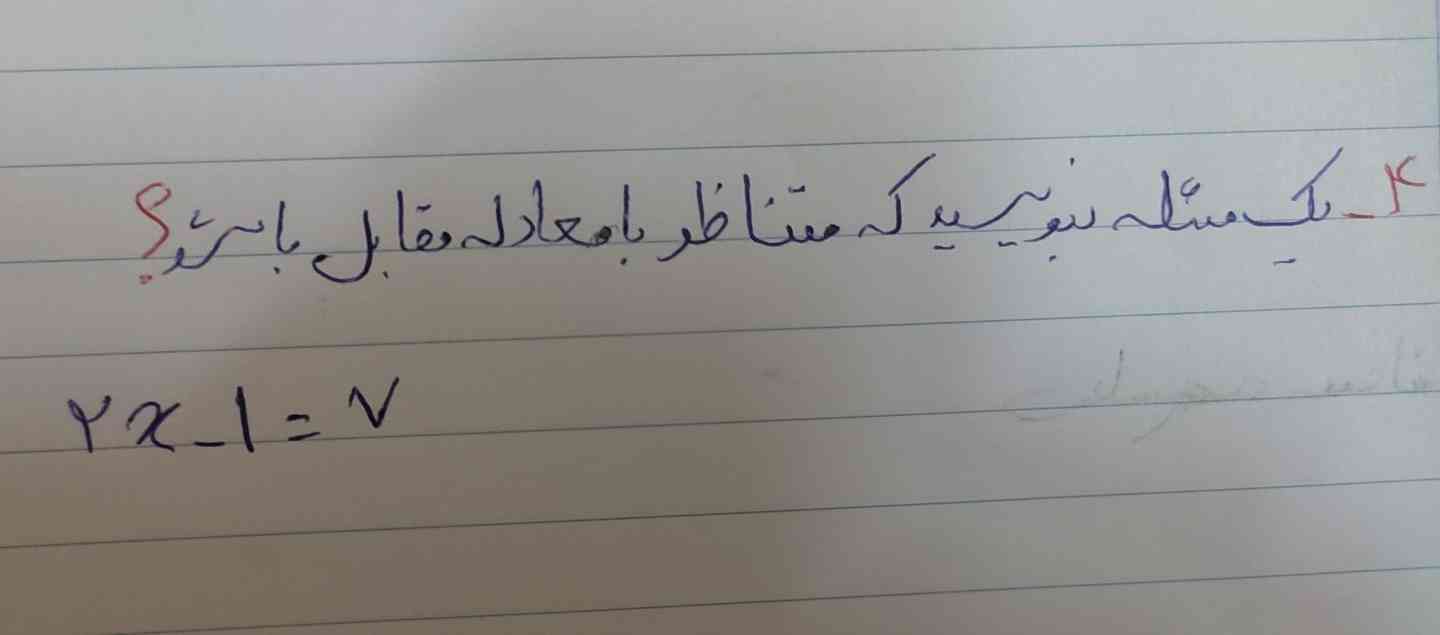 ۴- یک مسئله بنویسید که متناظر با معادله مقابل باشد؟
۲x-۱=۷